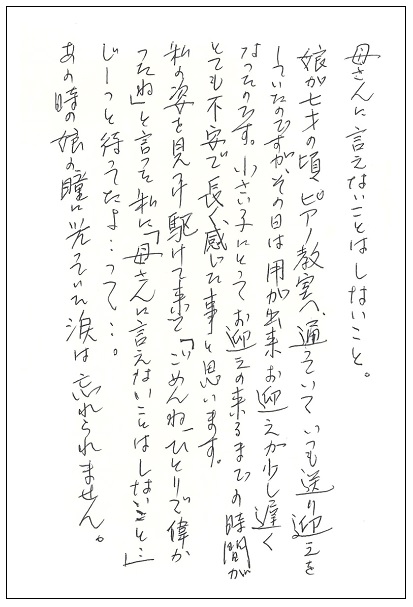 母さんに言えないことはしないこと。
娘が七才の頃、ピアノ教室へ通っていていつも送り迎えを
していたのですが、その日は用が出来お迎えが少し遅く
なったのです。小さい子にとってお迎えの来るまでの時間が
とても不安で長く感じた事と思います。
私の姿を見つけ駆けて来て「ごめんね、ひとりで偉か
ったね」と言った私に「母さんに言えないことはしないこと…」
じーっと待ってたよ…って…。
あの時の娘の瞳に光っていた涙は忘れられません。